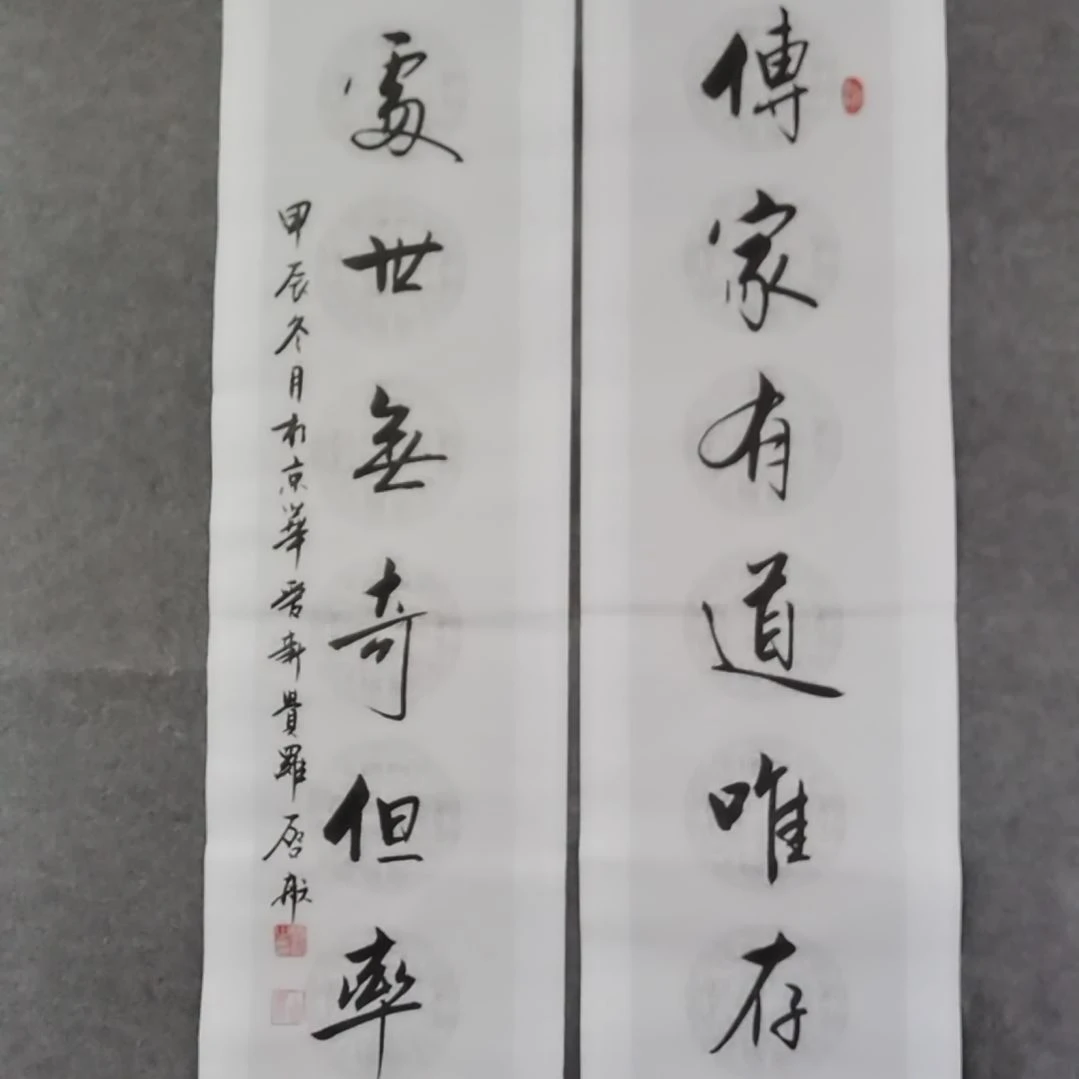 傳家有道唯存
處世無奇但率
甲辰冬月於京華晉新貴羅啓航